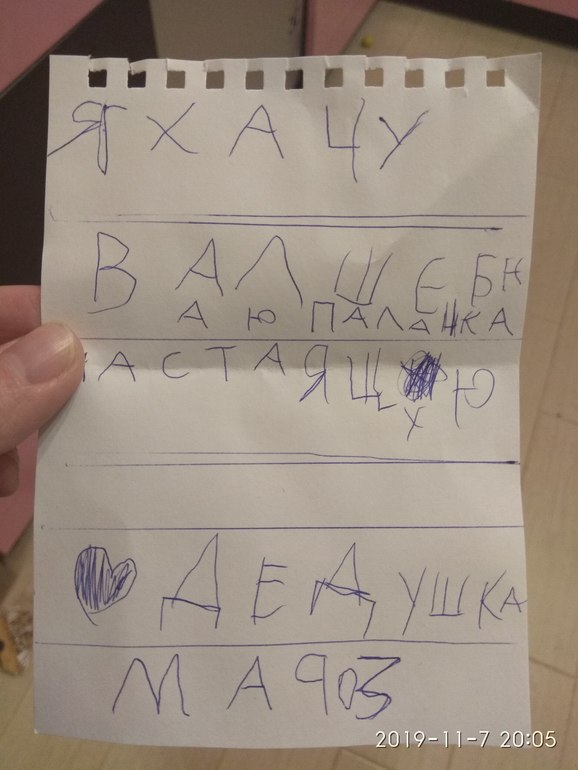 Я ХАЧУ
ВАЛШЕБН
АЮ ПАЛАЧКА
НАСТАЯЩУЮ
ДЕДУШКА
МАРОЗ
2019-11-7 20:05